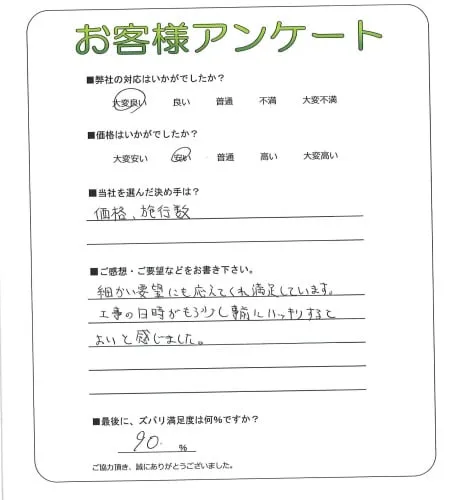 お客様アンケート
■弊社の対応はいかがでしたか?
大変良い 良い 普通 不満 大変不満
■価格はいかがでしたか?
大変安い 安い 普通 高い 大変高い
■当社を選んだ決め手は?
価格、旅行数
■ご感想・ご要望などをお書き下さい。
細かい要望にも応えてくれ満足しています。
工事の日時がもう少し事前にハッキリすると
よいと感じました。
■最後に、ズバリ満足度は何%ですか?
90. %
ご協力頂き、誠にありがとうございました。